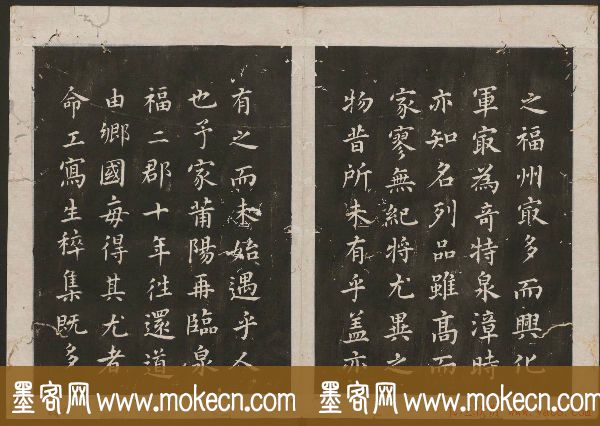 之福州㝡多而興化
軍㝡為竒特泉漳時
亦知名列品雖髙而
家寥無紀将尤異之
物昔所未有乎盖亦
有之而未始遇乎人
也予家莆陽再臨泉
福二郡十年往還道
由鄉國每得其尤者
命工寫生稡集既多
墨客网 www.mokecn.com
墨客网 www.mokecn.com